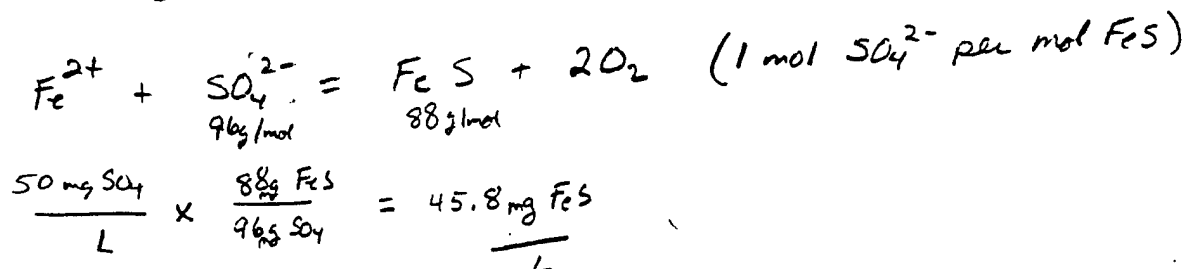 Fe²⁺ + SO₄²⁻ = FeS + 2O₂ (1 mol SO₄²⁻ per mol FeS)
96g/mol 88g/mol
50 mg SO₄ / L × 88g mg FeS / 96g mg SO₄ = 45.8 mg FeS / L